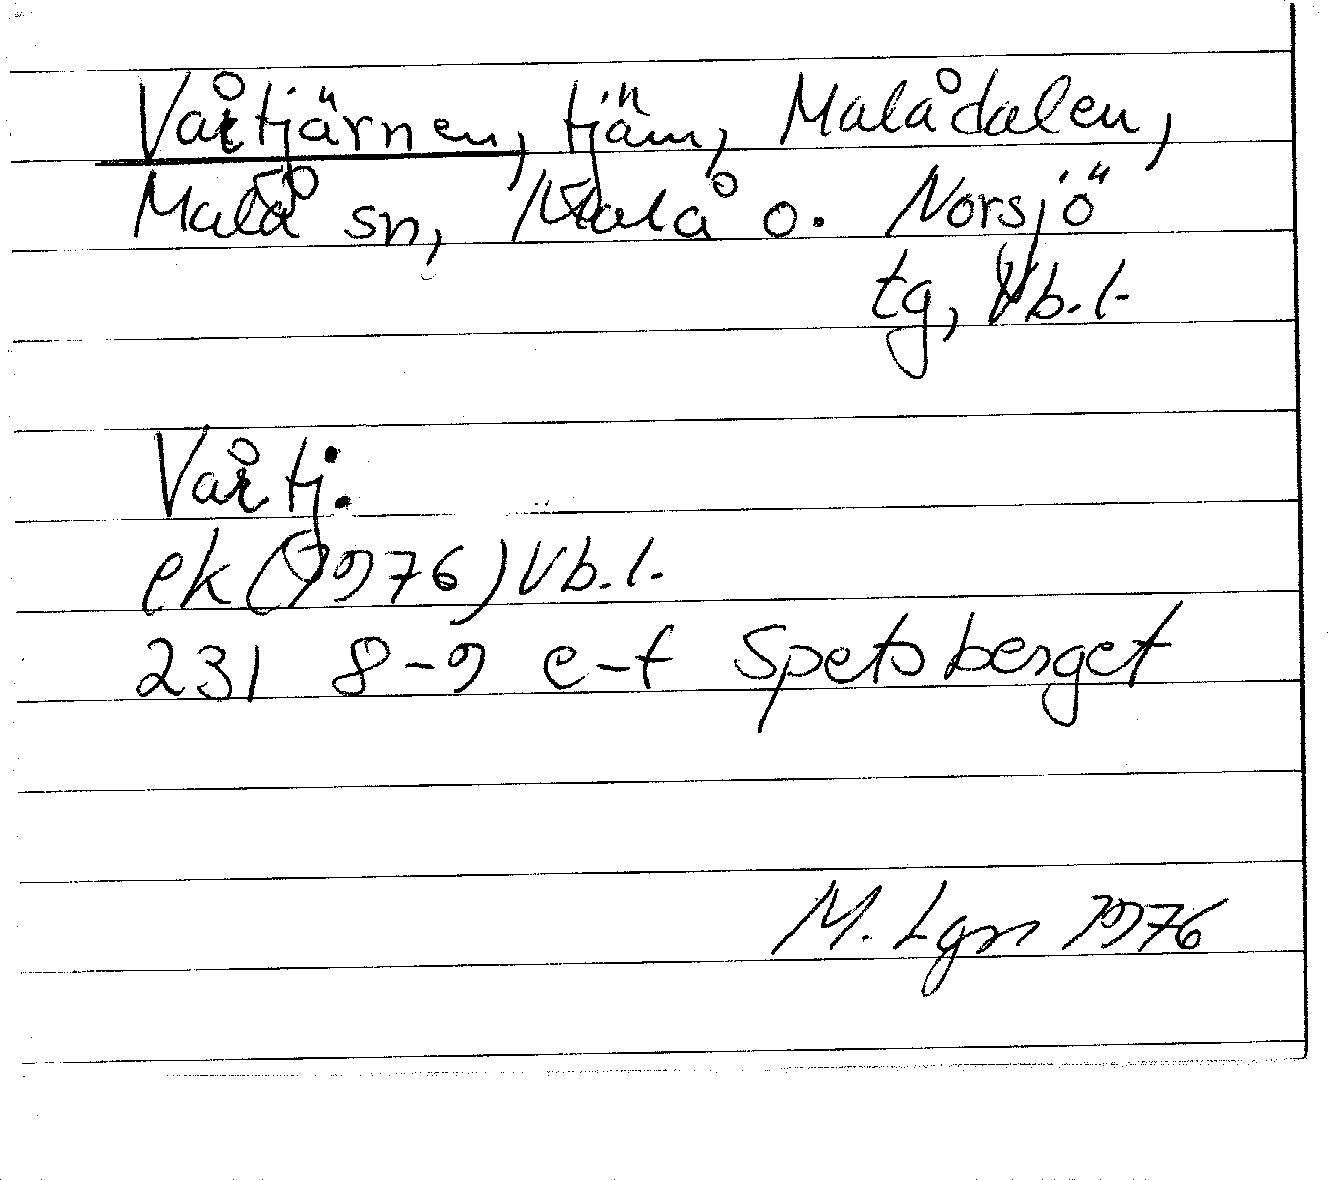 Vårtjärnen, tjärn, Malådalen,
Malå sn, Malå o. Norsjö
tg, Vb.l.
Vårtj.
ek (1976) Vb.l.
231 8-9 e-f Spetsberget
M. Lgn 1976